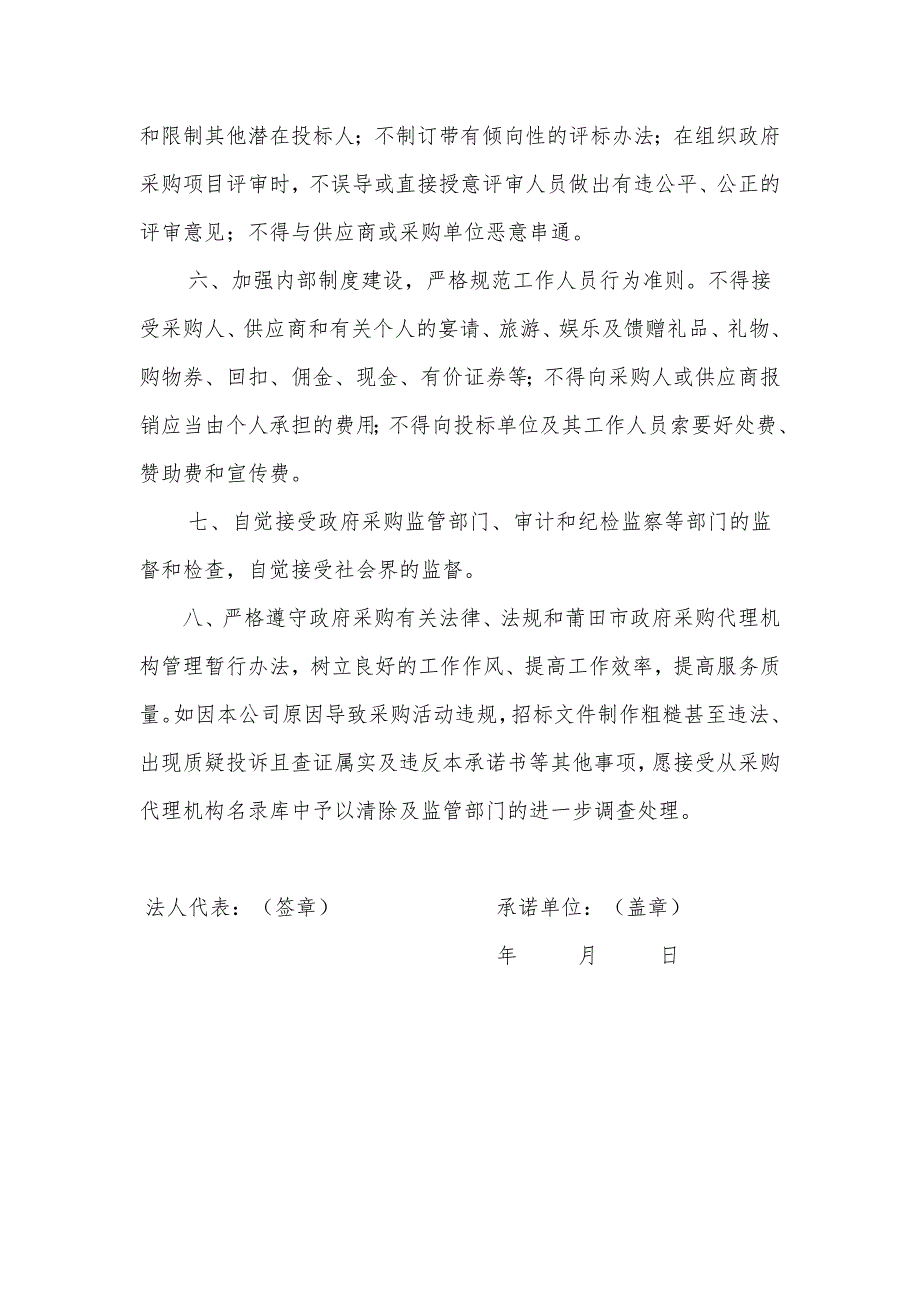 和限制其他潜在投标人；不制订带有倾向性的评标办法；在组织政府
采购项目评审时，不误导或直接授意评审人员做出有违公平、公正的
评审意见；不得与供应商或采购单位恶意串通。
六、加强内部制度建设，严格规范工作人员行为准则。不得接
受采购人、供应商和有关个人的宴请、旅游、娱乐及馈赠礼品、礼物、
购物券、回扣、佣金、现金、有价证券等；不得向采购人或供应商报
销应当由个人承担的费用；不得向投标单位及其工作人员索要好处费、
赞助费和宣传费。
七、自觉接受政府采购监管部门、审计和纪检监察等部门的监
督和检查，自觉接受社会界的监督。
八、严格遵守政府采购有关法律、法规和莆田市政府采购代理机
构管理暂行办法，树立良好的工作作风、提高工作效率，提高服务质
量。如因本公司原因导致采购活动违规，招标文件制作粗糙甚至违法、
出现质疑投诉且查证属实及违反本承诺书等其他事项，愿接受从采购
代理机构名录库中予以清除及监管部门的进一步调查处理。
法人代表：（签章） 承诺单位：（盖章）
年 月 日